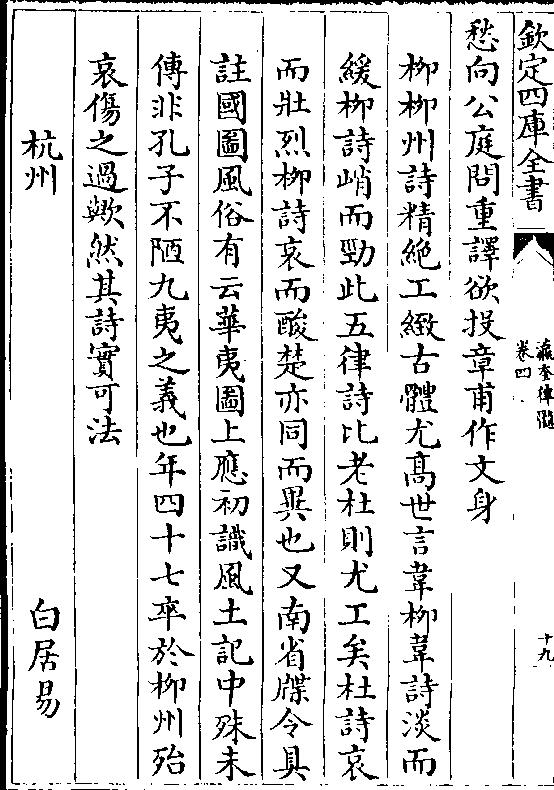 欽定四庫全書
瀛奎律髓
卷四
十九
愁向公庭問重譯欲投章甫作文身
柳柳州詩精絶工緻古體尤髙世言韋柳韋詩淡而
緩柳詩峭而勁此五律詩比老杜則尤工矣杜詩哀
而壯烈柳詩哀而酸楚亦同而異也又南省牒令具
註國圖風俗有云華夷圖上應初識風土記中殊未
傳非孔子不陋九夷之義也年四十七卒於柳州殆
哀傷之過歟然其詩實可法
杭州 白居易